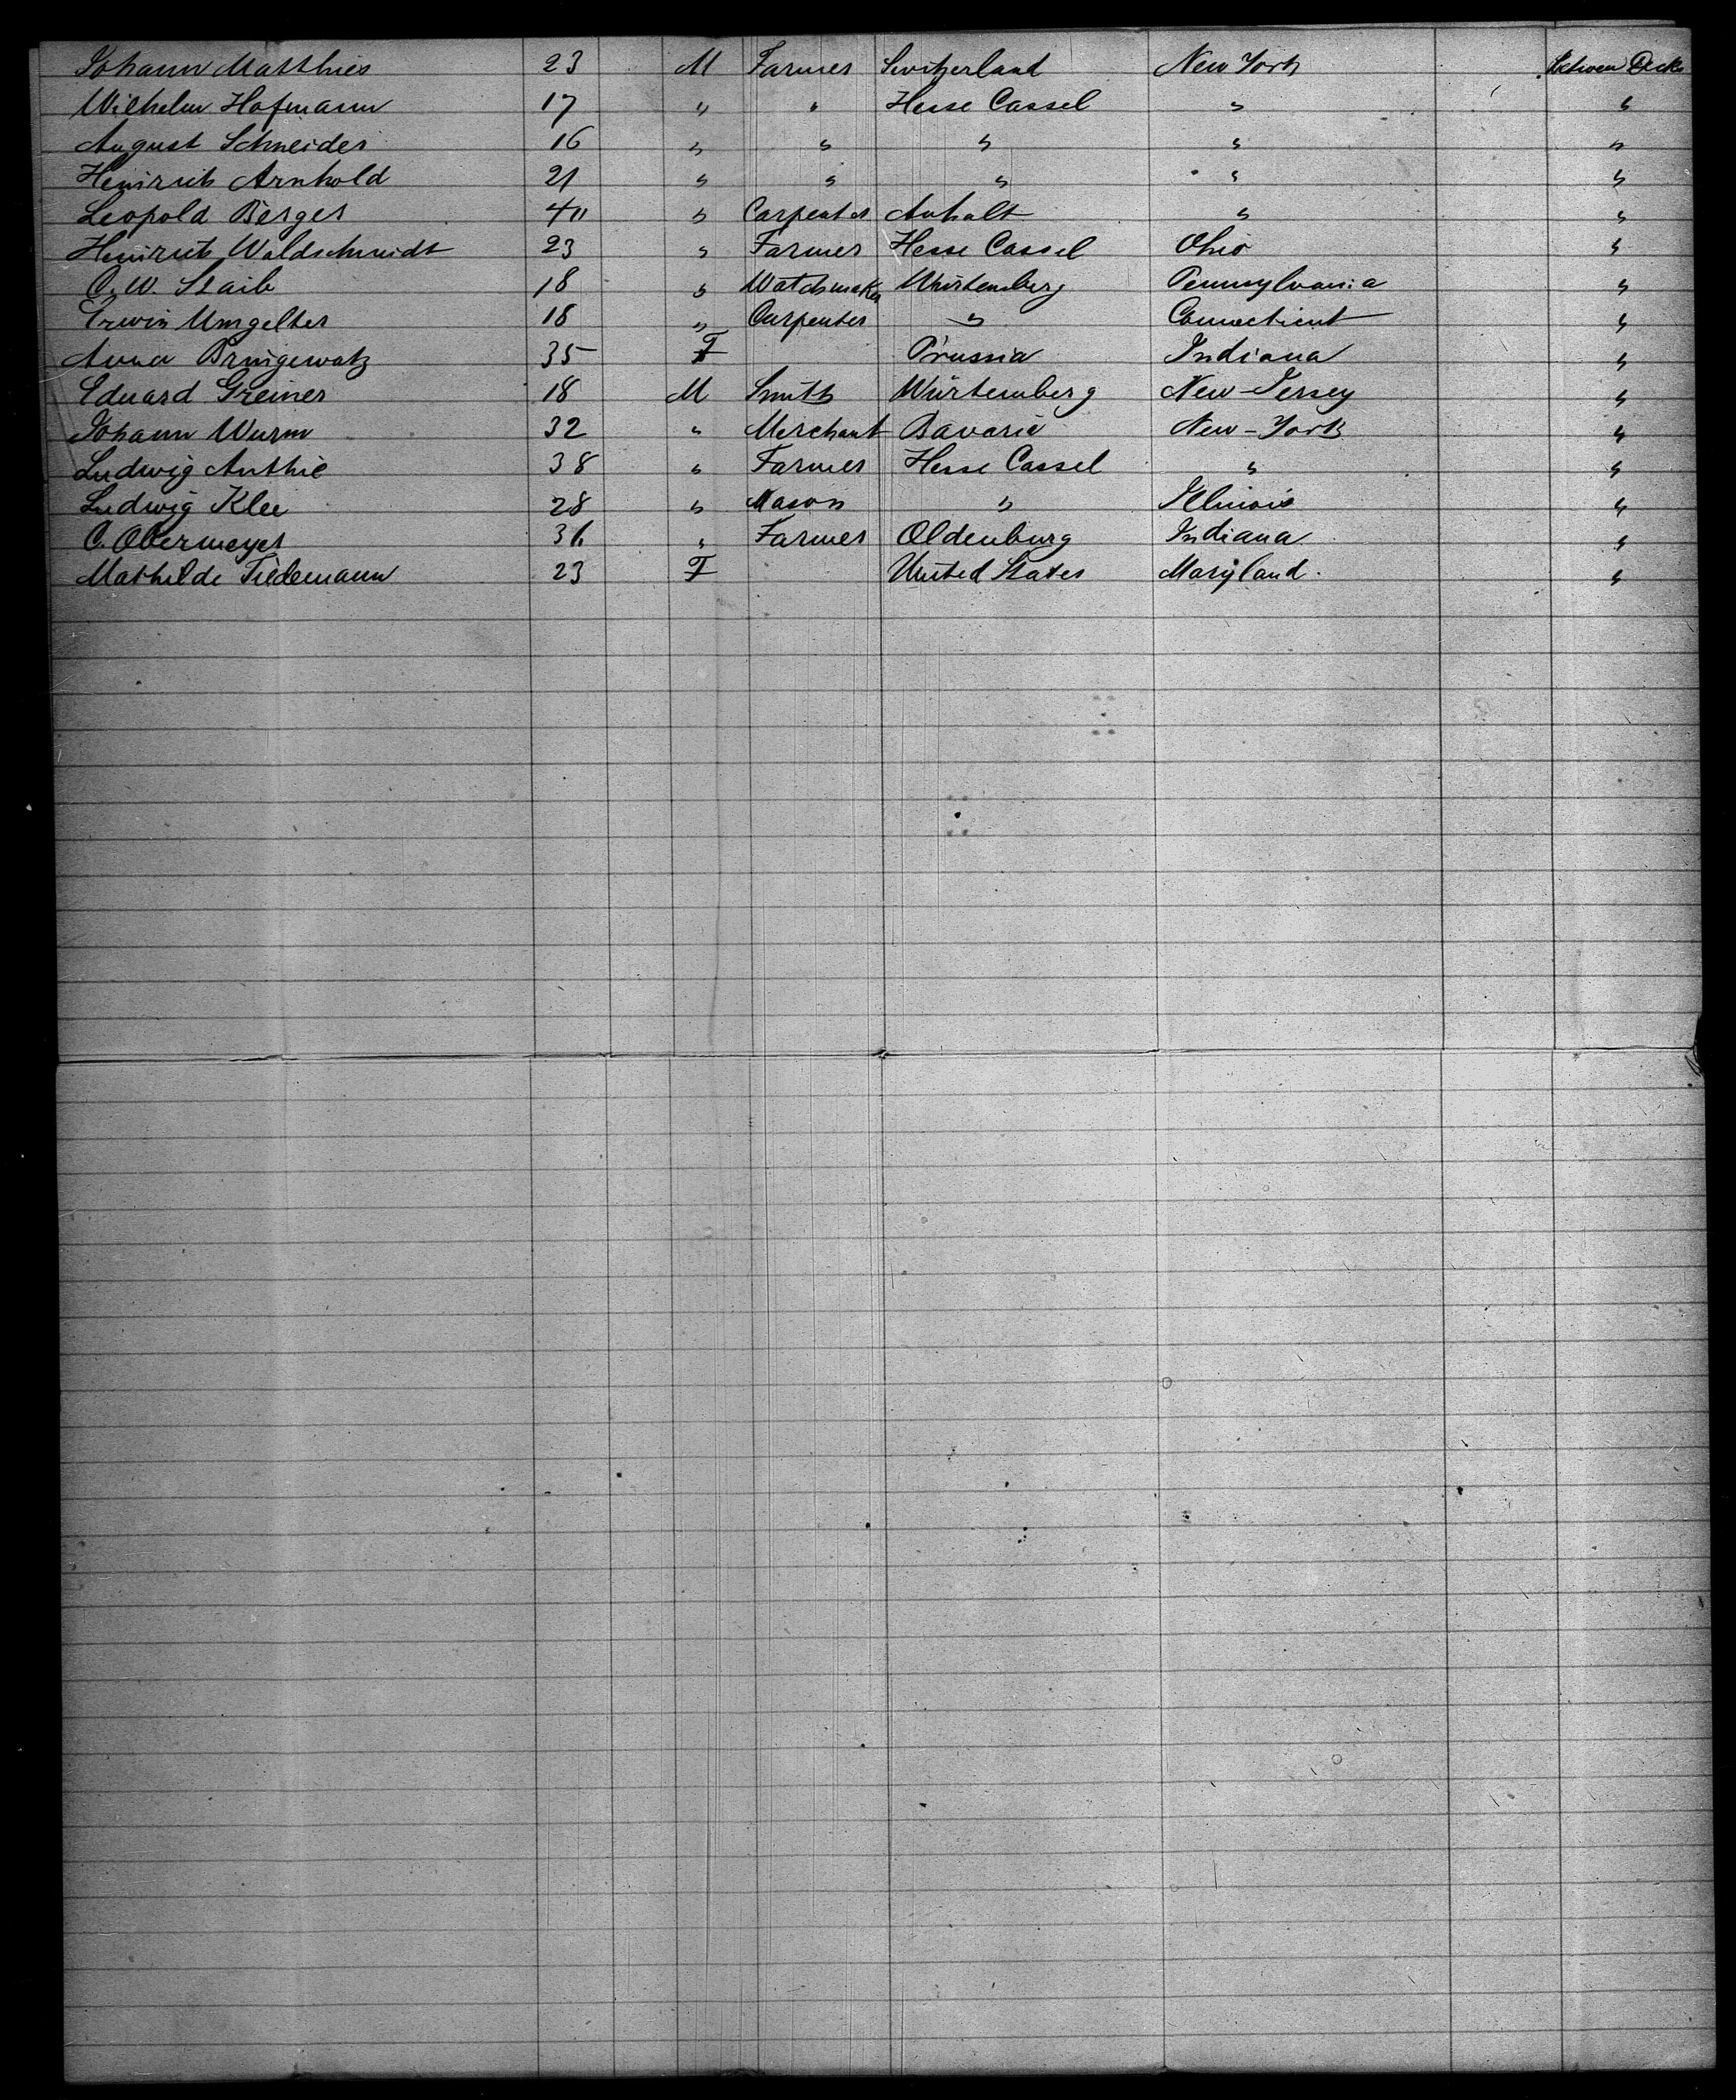 Johann Matthies 23 M Farmer Switzerland New York Between Decks
Wilhelm Hofmann 17 " " Hesse Cassel " "
August Schneider 16 " " " " "
Heinrich Arnhold 21 " " " " "
Leopold Berger 40 " Carpenter Anhalt " "
Heinrich Waldschmidt 23 " Farmer Hesse Cassel Ohio "
C. W. Staib 18 " Watchmaker Würtemberg Pennsylvania "
Erwin Umgelter 18 " Carpenter " Connecticut "
Anna Bringewatz 35 F Prussia Indiana "
Eduard Greiner 18 M Smith Würtemberg New-Jersey "
Johann Wurm 32 " Merchant Bavaria New-York "
Ludwig Authie 38 " Farmer Hesse Cassel " "
Ludwig Klee 28 " Mason " Illinois "
C. Obermeyer 36 " Farmer Oldenburg Indiana "
Mathilde Tiedemann 23 F United States Maryland. "